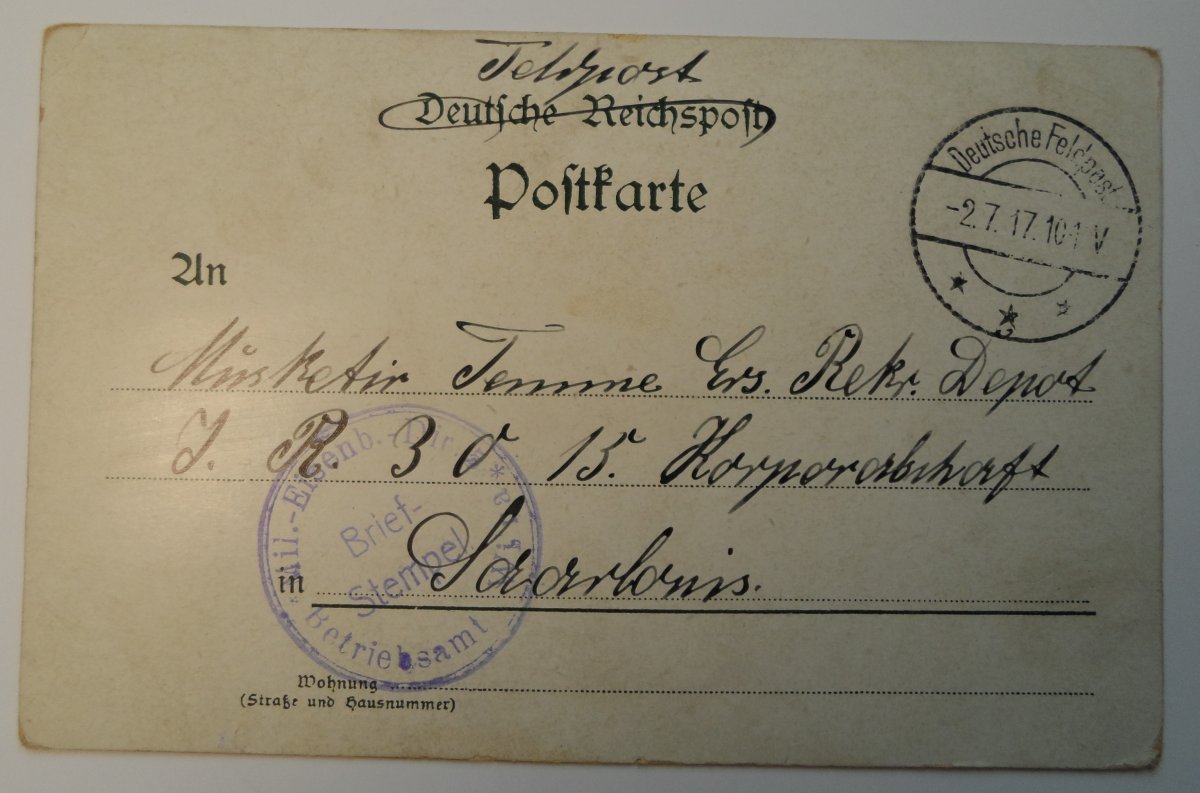 Feldpost
Deutsche Reichspost
Postkarte
Deutsche Feldpost
-2.7.17.10-1 V
An
Musketir Temme Ers. Rekr. Depot
I. R. 30 15. Korporalschaft
in Saarlouis.
Mil.-Eisenb.-Dir
Brief-
Stempel
Betriebsamt
Wohnung
(Straße und Hausnummer)